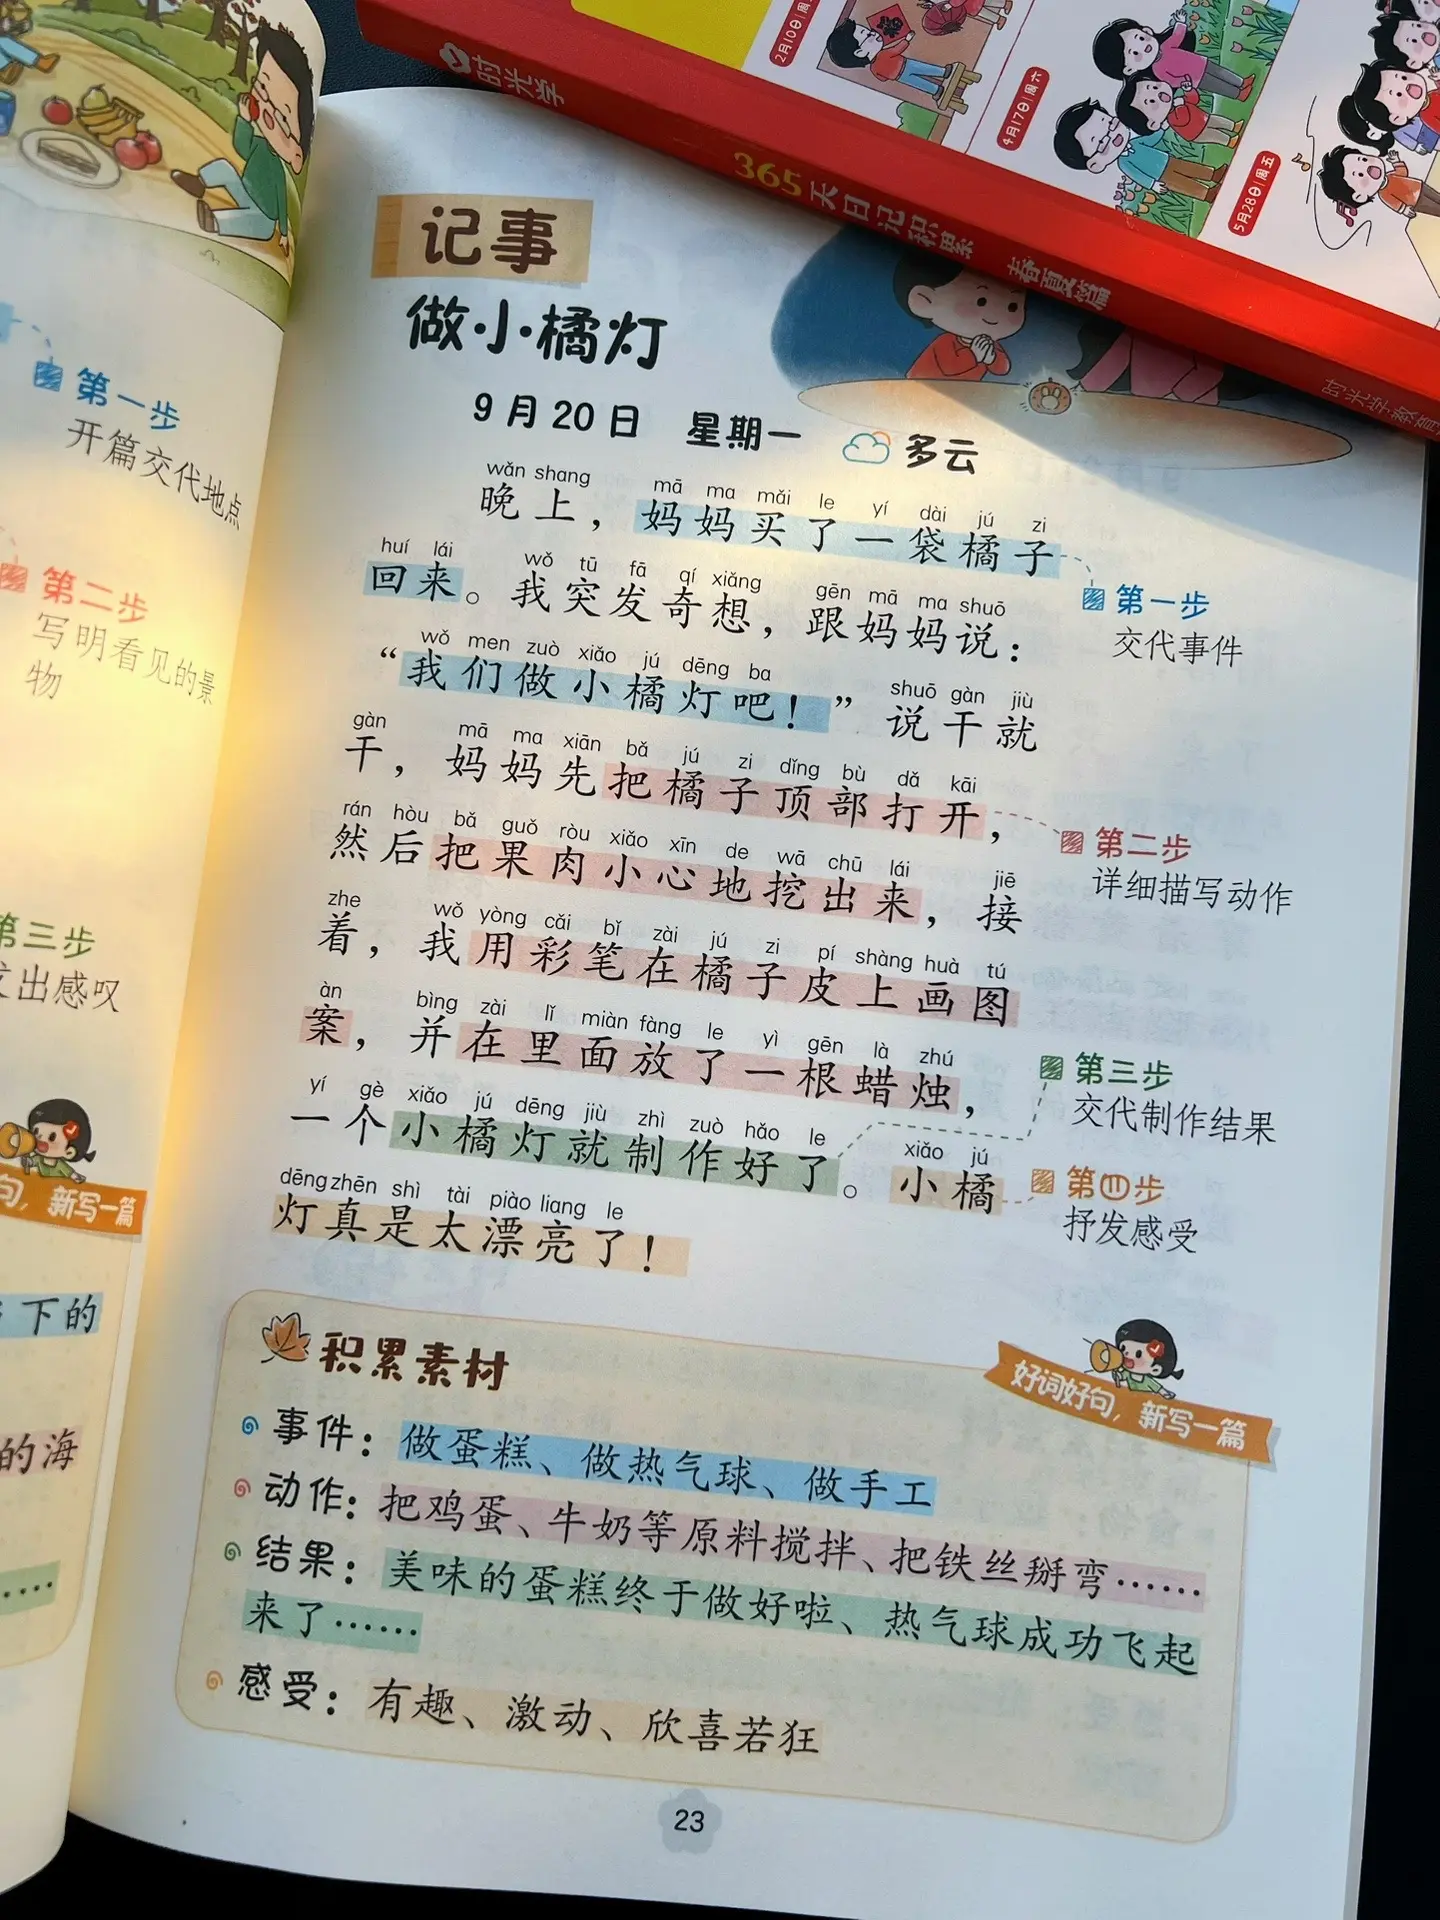 时光学
365天日记积累 春夏篇
时光学教育
2月10日|周三
4月17日|周六
5月28日|周五
第一步
开篇交代地点
第二步
写明看见的景
物
第三步
出感叹
句，新写一篇
下的
的海
……
记事
做小橘灯
9月20日 星期一 多云
wǎn shang mā ma mǎi le yí dài jú zi
晚上，妈妈买了一袋橘子
huí lái wǒ tū fā qí xiǎng gēn mā ma shuō
回来。我突发奇想，跟妈妈说：
wǒ men zuò xiǎo jú dēng ba shuō gàn jiù
“我们做小橘灯吧！”说干就
gàn mā ma xiān bǎ jú zi dǐng bù dǎ kāi
干，妈妈先把橘子顶部打开，
rán hòu bǎ guǒ ròu xiǎo xīn de wā chū lái jiē
然后把果肉小心地挖出来，接
zhe wǒ yòng cǎi bǐ zài jú zi pí shàng huà tú
着，我用彩笔在橘子皮上画图
àn bìng zài lǐ miàn fàng le yì gēn là zhú
案，并在里面放了一根蜡烛，
yí gè xiǎo jú dēng jiù zhì zuò hǎo le xiǎo jú
一个小橘灯就制作好了。小橘
dēng zhēn shì tài piào liang le
灯真是太漂亮了！
第一步
交代事件
第二步
详细描写动作
第三步
交代制作结果
第四步
抒发感受
积累素材
好词好句，新写一篇
事件：做蛋糕、做热气球、做手工
动作：把鸡蛋、牛奶等原料搅拌、把铁丝掰弯……
结果：美味的蛋糕终于做好啦、热气球成功飞起
来了……
感受：有趣、激动、欣喜若狂
23